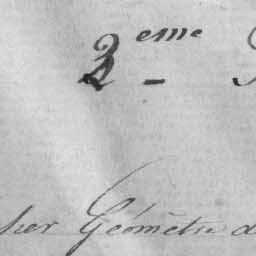 2eme -
her Géomètre d